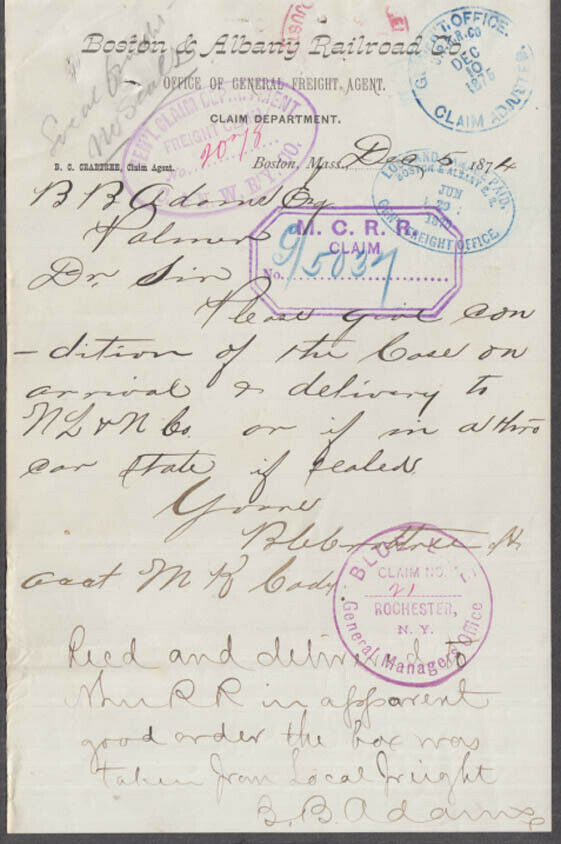 Local freight
No Seals
Boston & Albany Railroad Co.
OFFICE OF GENERAL FREIGHT AGENT.
CLAIM DEPARTMENT.
GEN'L CLAIM DEPARTMENT
FREIGHT CLAIM
No. 2078
W. E. Y. CO.
GEN'L F'T. OFFICE.
R.R. CO
DEC
10
187
CLAIM ADJUSTER.
B. C. CRABTREE, Claim Agent.
Boston, Mass., Dec 5 1874
LOSS AND PAID.
BOSTON & ALBANY R.R.
JUN
22
187
GEN'L FREIGHT OFFICE.
B B Adams Esq
Palmer
M. C. R. R.
CLAIM
No. 9/5037
Dr. Sir
Please give con
-dition of the Case on
arrival & delivery to
N L & N Co. or if in a thro
car state if sealed
Yours
B C Crabtree A
acct M K Cady.
CLAIM NO.
21
ROCHESTER,
N. Y.
General Manager's Office
Recd and delivered to
RR in apparent
good order the box was
taken from Local freight
B. B. Adams